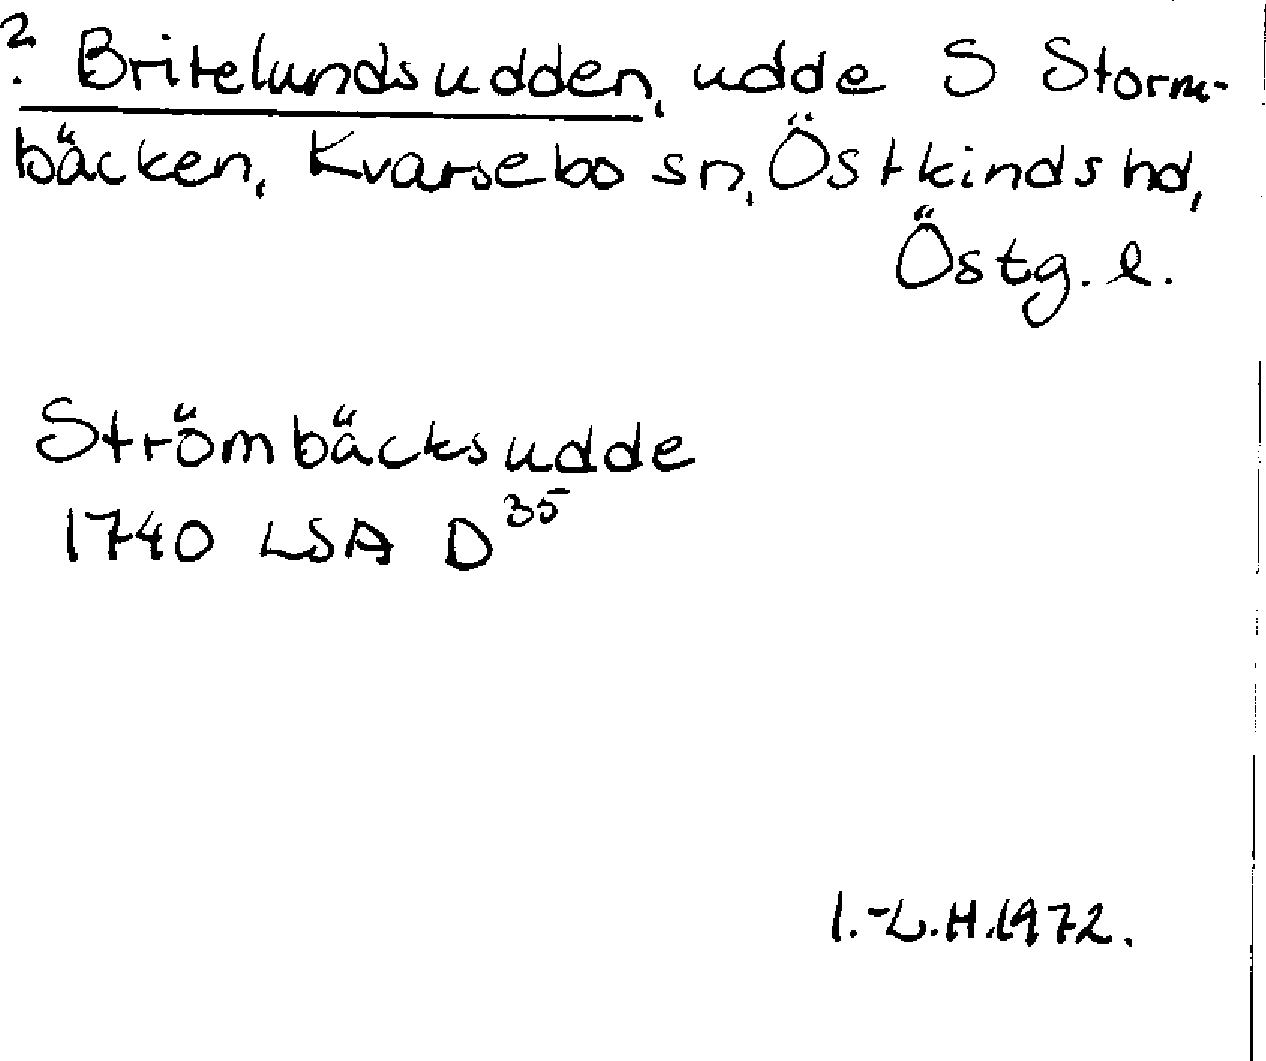 ? Britelundsudden, udde S Storm-
bäcken, Kvarsebo sn, Östkinds hd,
Östg. l.
Strömbäcksudde
1740 LSA D 35
I.-L.H.1972.